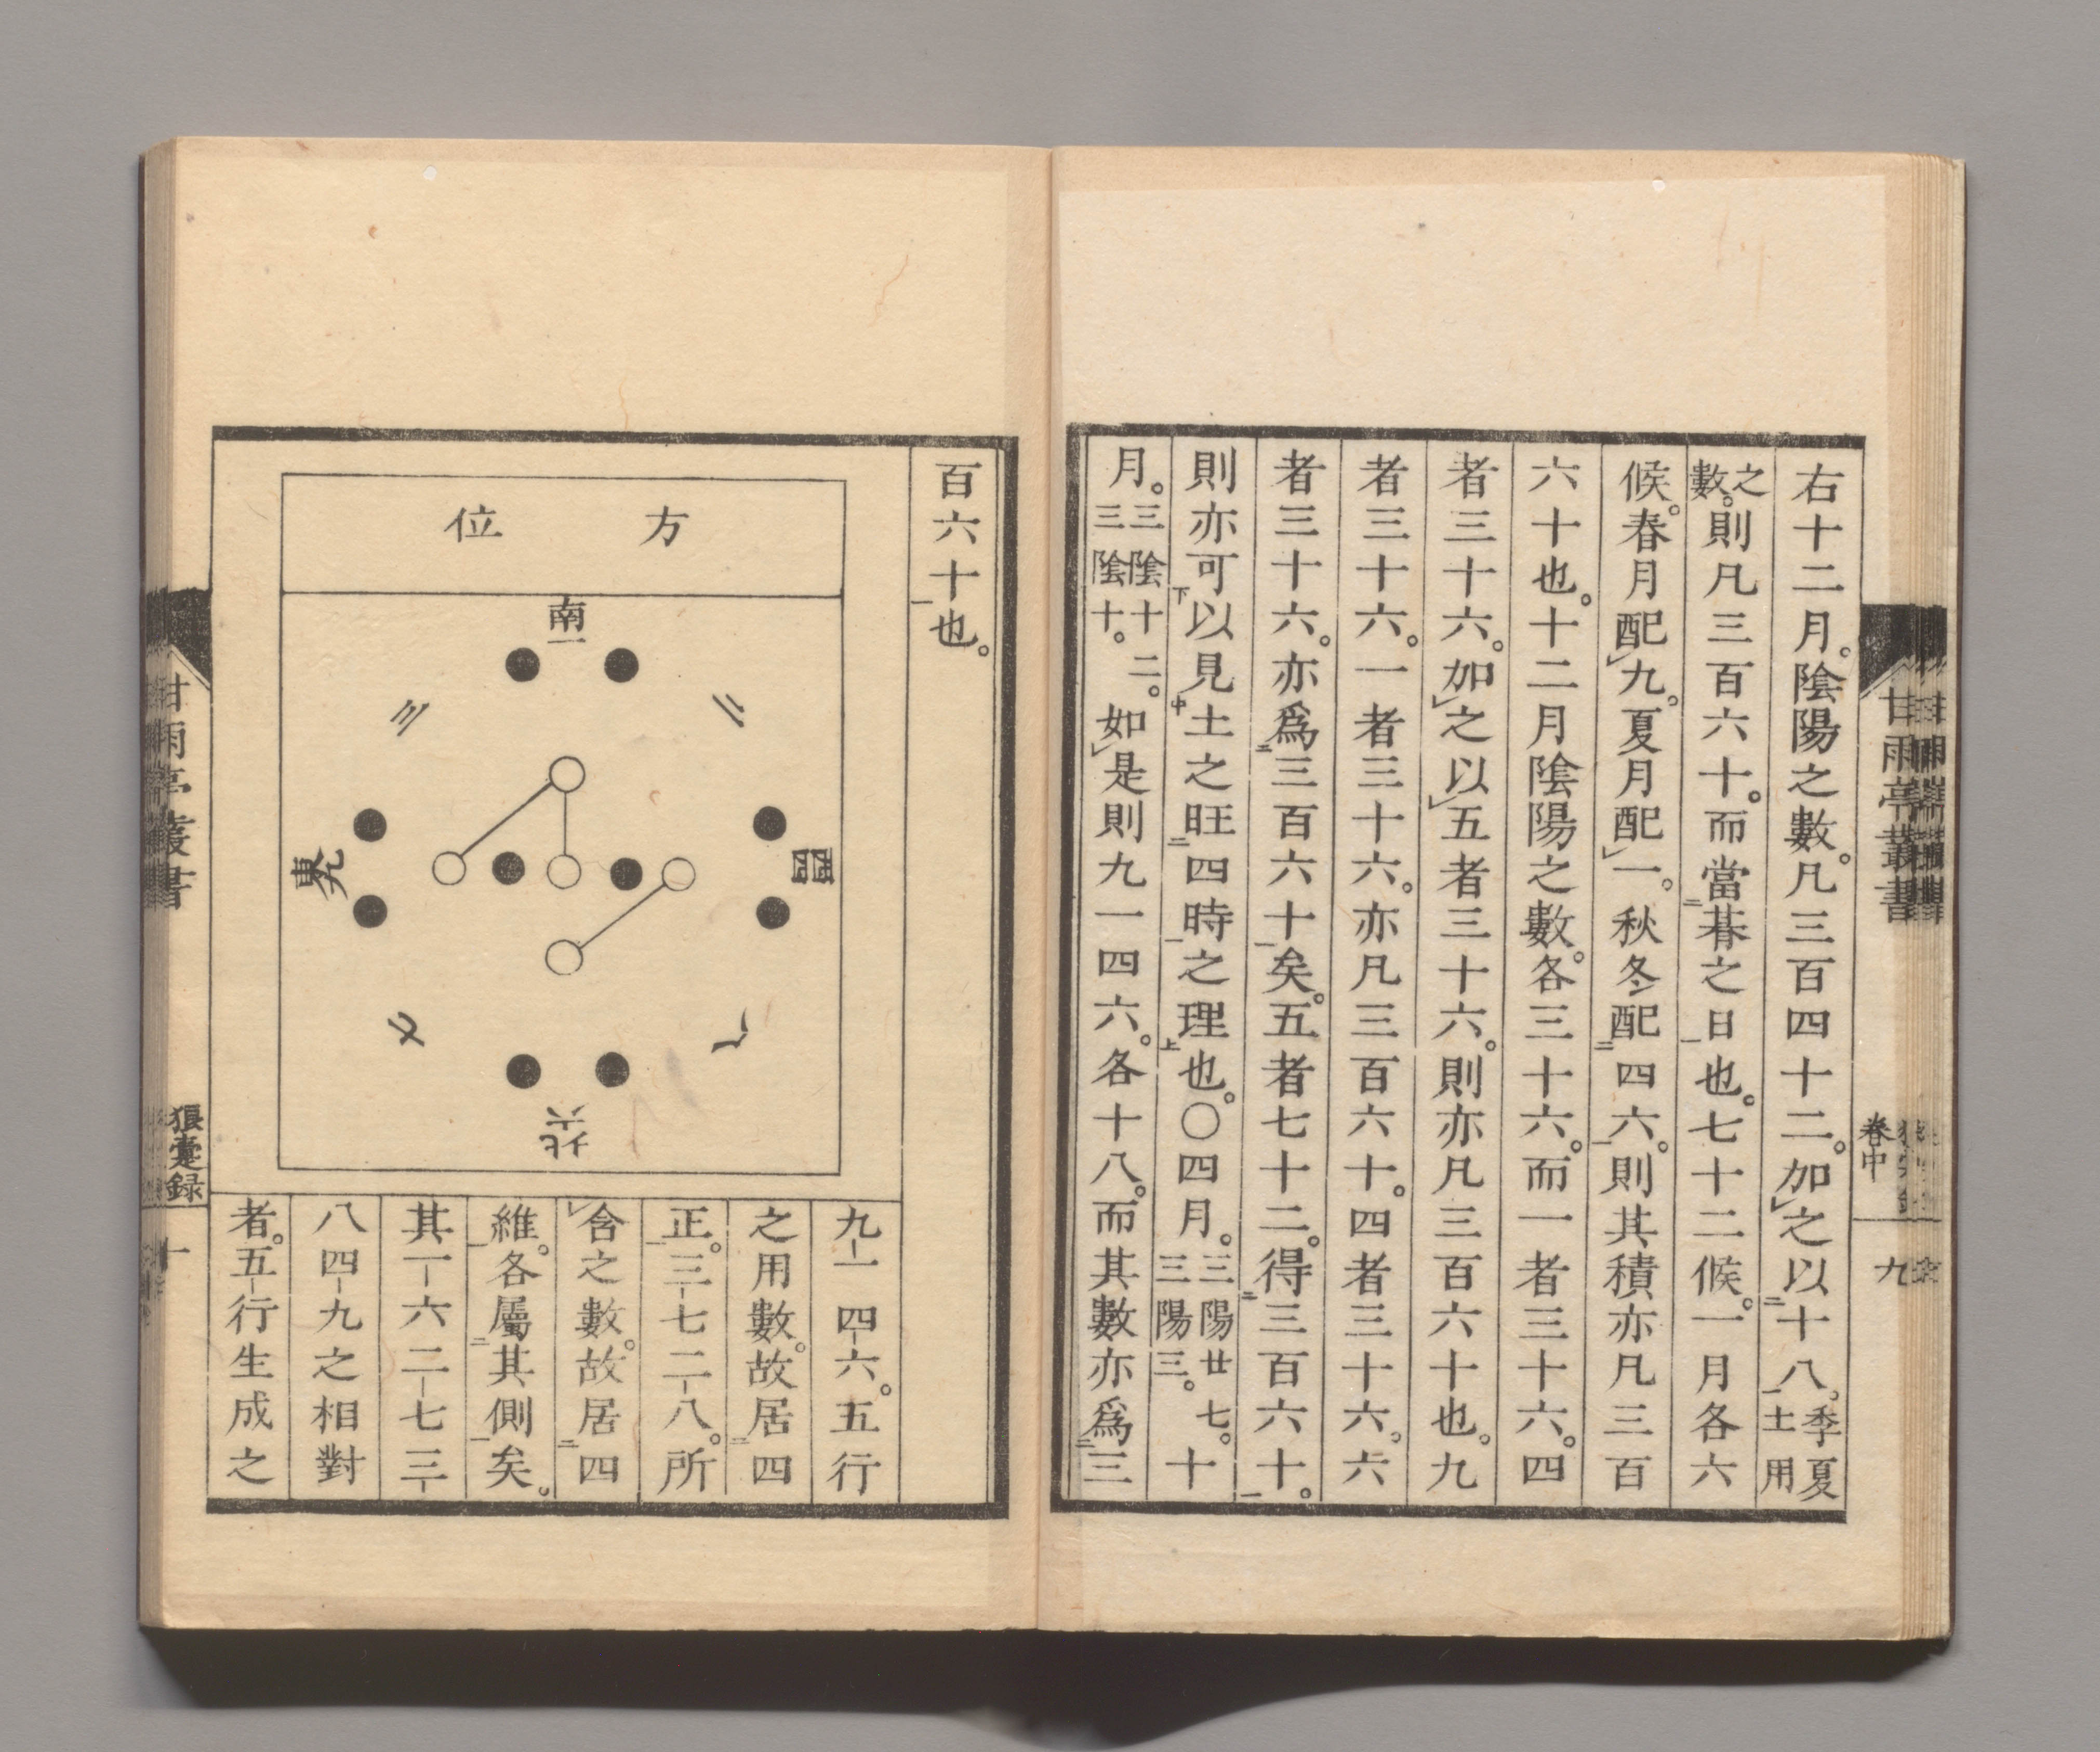 右十二月。陰陽之數。凡三百四十二。加之以十八。季夏土用
之數。則凡三百六十。而當朞之日也。七十二候。一月各六
候。春月配九。夏月配一。秋冬配四六。則其積亦凡三百
六十也。十二月陰陽之數。各三十六。而一者三十六。四
者三十六。加之以五者三十六。則亦凡三百六十也。九
者三十六。一者三十六。亦凡三百六十。四者三十六。六
者三十六。亦爲三百六十矣。五者七十二。得三百六十。
則亦可以見土之旺四時之理也。〇四月。三陽廿七。三陽三。十
月。三陰十二。三陰十。如是則九一四六。各十八。而其數亦爲三
甘雨亭叢書
卷中
九
百六十也。
方位
南一
二
三
西四
東九
七
八
北六
九一四六。五行
之用數。故居四
正。三七二八。所
含之數。故居四
維。各屬其側矣。
其一六二七三
八四九之相對
者。五行生成之
甘雨亭叢書
狼疐録
十